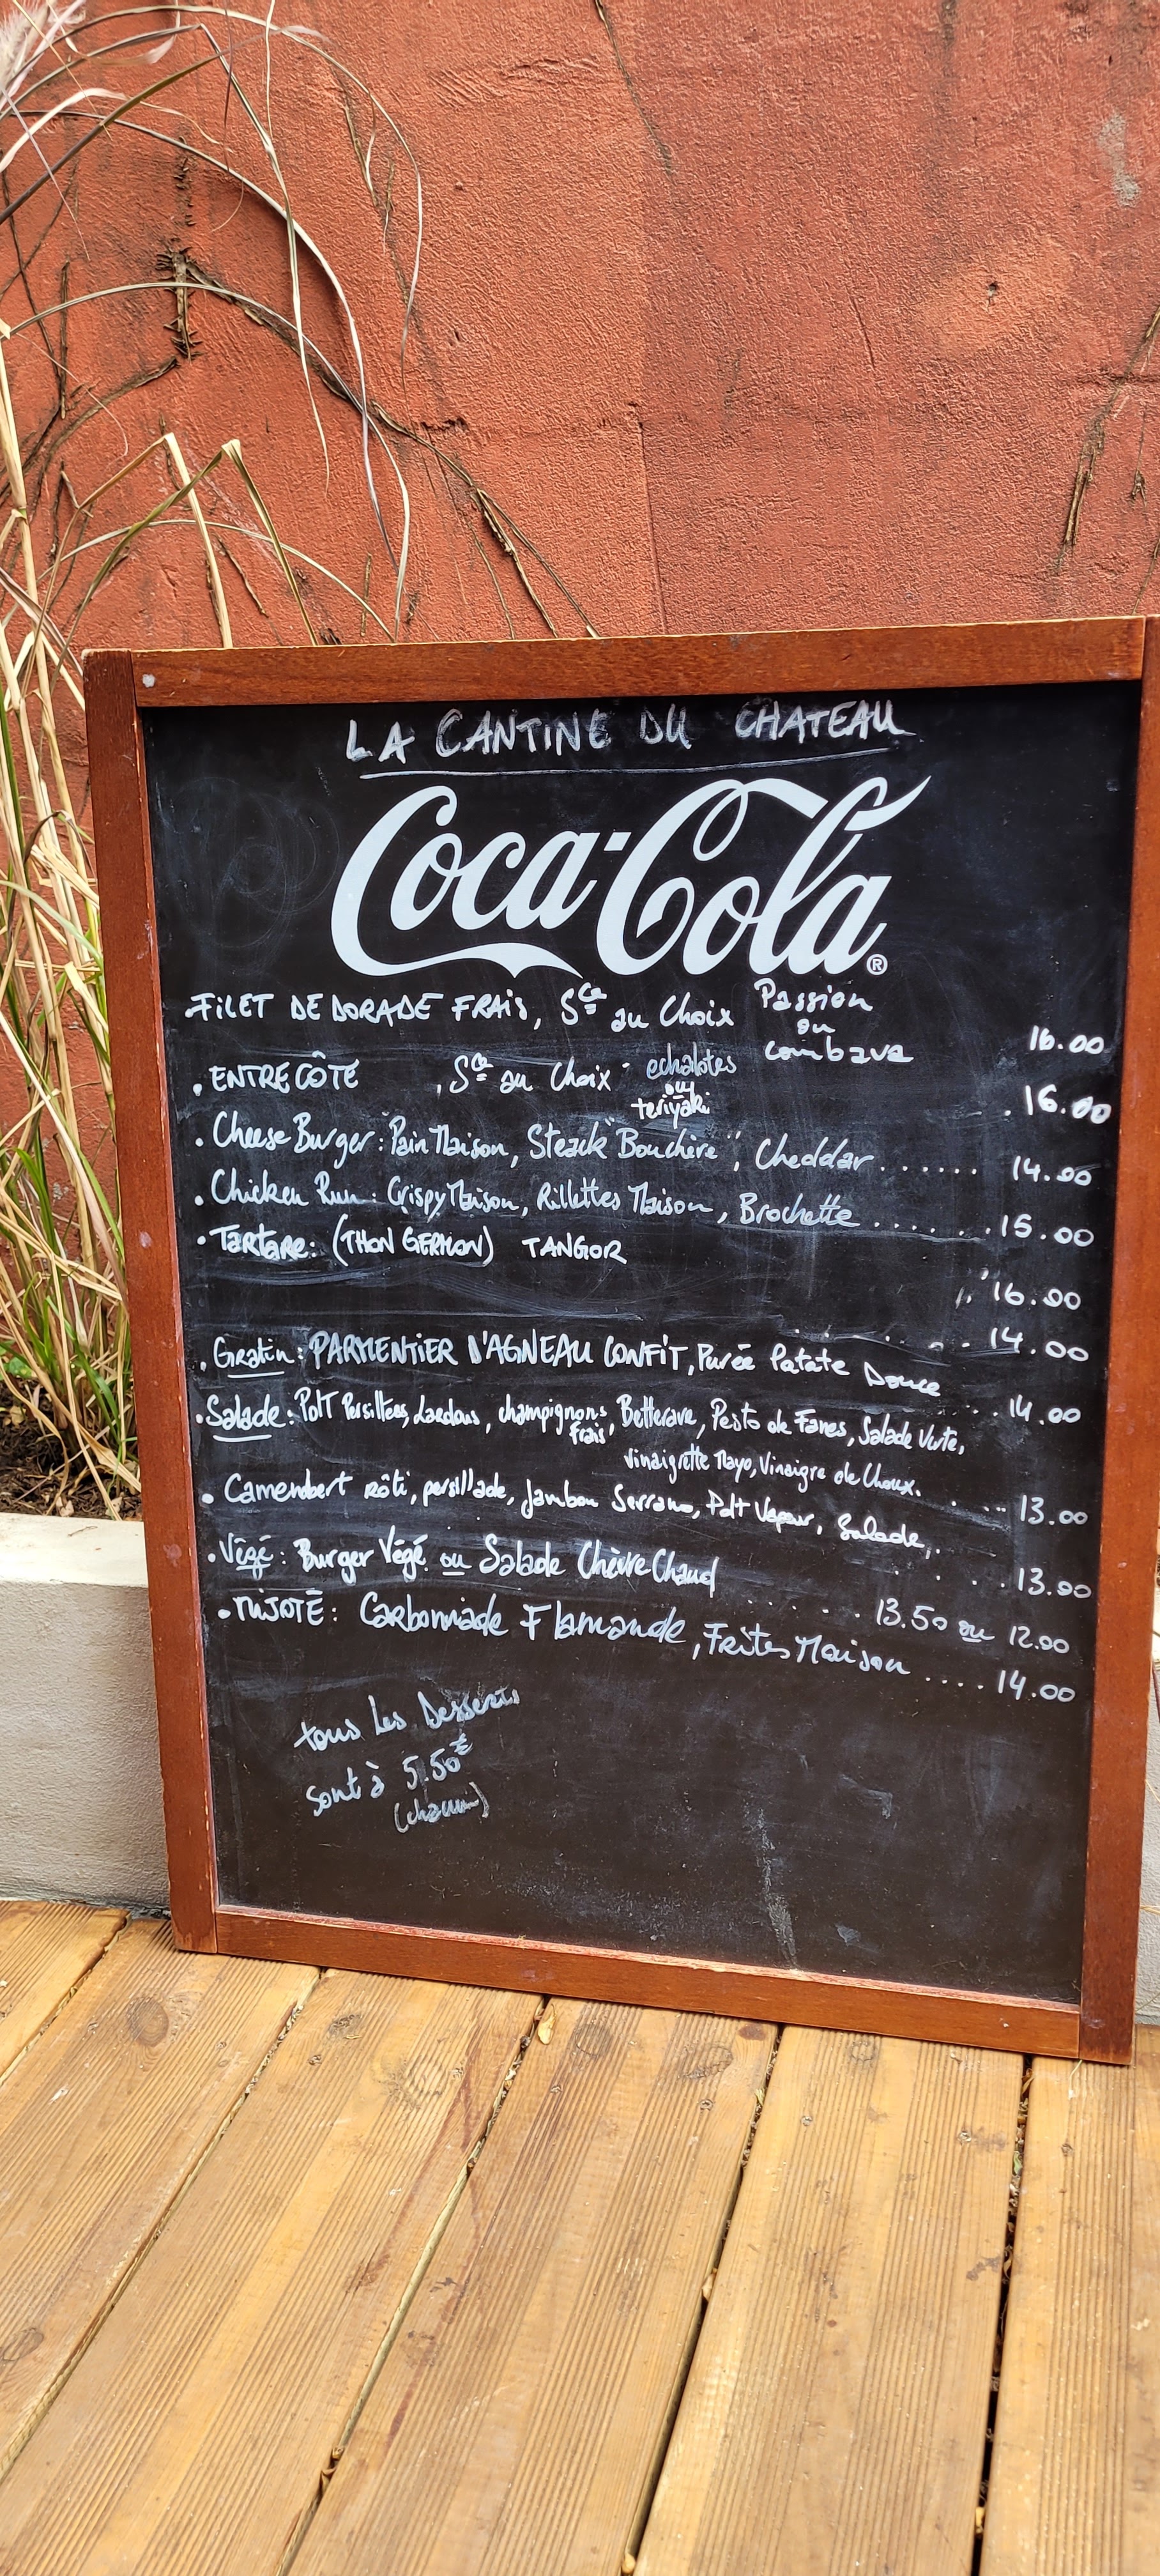 LA CANTINE DU CHATEAU
Coca-Cola®
.FILET DE DORADE FRAIS, Sce au Choix Passion
ou
combava 16.00
. ENTRECÔTE , Sce au Choix - echalotes
ou
teriyaki . 16.00
. Cheese Burger : Pain Maison, Steack "Bouchère", Cheddar ...... 14.00
. Chicken Run : Crispy Maison, Rillettes Maison, Brochette ....... 15.00
. Tartare : (THON GERMON) TANGOR
16.00
. Gratin : PARMENTIER D'AGNEAU CONFIT, Purée Patate Douce 14.00
. Salade : PdT Persillées, Lardons, champignons frais, Betterave, Pesto de Fanes, Salade Verte, 14.00
vinaigrette Mayo, Vinaigre de Choux.
. Camembert rôti, persillade, Jambon Serrano, PdT Vapeur, Salade, . 13.00
. . . . 13.00
. Végé : Burger Végé ou Salade Chèvre Chaud ...... 13.50 ou 12.00
. MIJOTÉ : Carbonnade Flamande, Frites Maison .... 14.00
tous les Desserts
sont à 5.50€